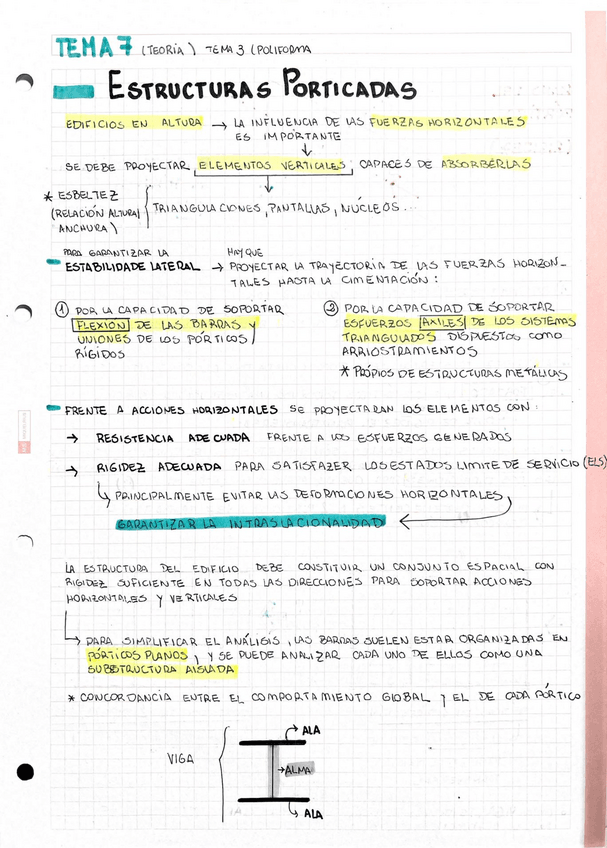 TEMA 7 (TEORÍA) TEMA 3 (POLIFORMA
ESTRUCTURAS PORTICADAS
EDIFICIOS EN ALTURA → LA INFLUENCIA DE LAS FUERZAS HORIZONTALES
ES IMPORTANTE
SE DEBE PROYECTAR ELEMENTOS VERTICALES CAPACES DE ABSORBERLAS
* ESBELTEZ
(RELACIÓN ALTURA/
ANCHURA)
TRIANGULACIONES, PANTALLAS, NÚCLEOS...
PARA GARANTIZAR LA
ESTABILIDADE LATERAL →
HAY QUE
PROYECTAR LA TRAYECTORIA DE LAS FUERZAS HORIZON-
TALES HASTA LA CIMENTACIÓN:
① POR LA CAPACIDAD DE SOPORTAR
FLEXIÓN DE LAS BARRAS Y
UNIONES DE LOS PÓRTICOS
RÍGIDOS
② POR LA CAPACIDAD DE SOPORTAR
ESFUERZOS AXILES DE LOS SISTEMAS
TRIANGULADOS DISPUESTOS COMO
ARRIOSTRAMIENTOS
* PROPIOS DE ESTRUCTURAS METÁLICAS
FRENTE A ACCIONES HORIZONTALES SE PROYECTARAN LOS ELEMENTOS CON:
→ RESISTENCIA ADECUADA FRENTE A LOS ESFUERZOS GENERADOS
→ RIGIDEZ ADECUADA PARA SATISFAZER LOS ESTADOS LIMITE DE SERVICIO (ELS)
↳ PRINCIPALMENTE EVITAR LAS DEFORMACIONES HORIZONTALES
GARANTIZAR LA INTRASLACIONALIDAD
LA ESTRUCTURA DEL EDIFICIO DEBE CONSTITUIR UN CONJUNTO ESPACIAL CON
RIGIDEZ SUFICIENTE EN TODAS LAS DIRECCIONES PARA SOPORTAR ACCIONES
HORIZONTALES Y VERTICALES
↳ PARA SIMPLIFICAR EL ANÁLISIS, LAS BARRAS SUELEN ESTAR ORGANIZADAS EN
PÓRTICOS PLANOS, Y SE PUEDE ANALIZAR CADA UNO DE ELLOS COMO UNA
SUBSTRUCTURA AISLADA
* CONCORDANCIA ENTRE EL COMPORTAMIENTO GLOBAL Y EL DE CADA PÓRTICO
ALA
VIGA
→ ALMA
ALA